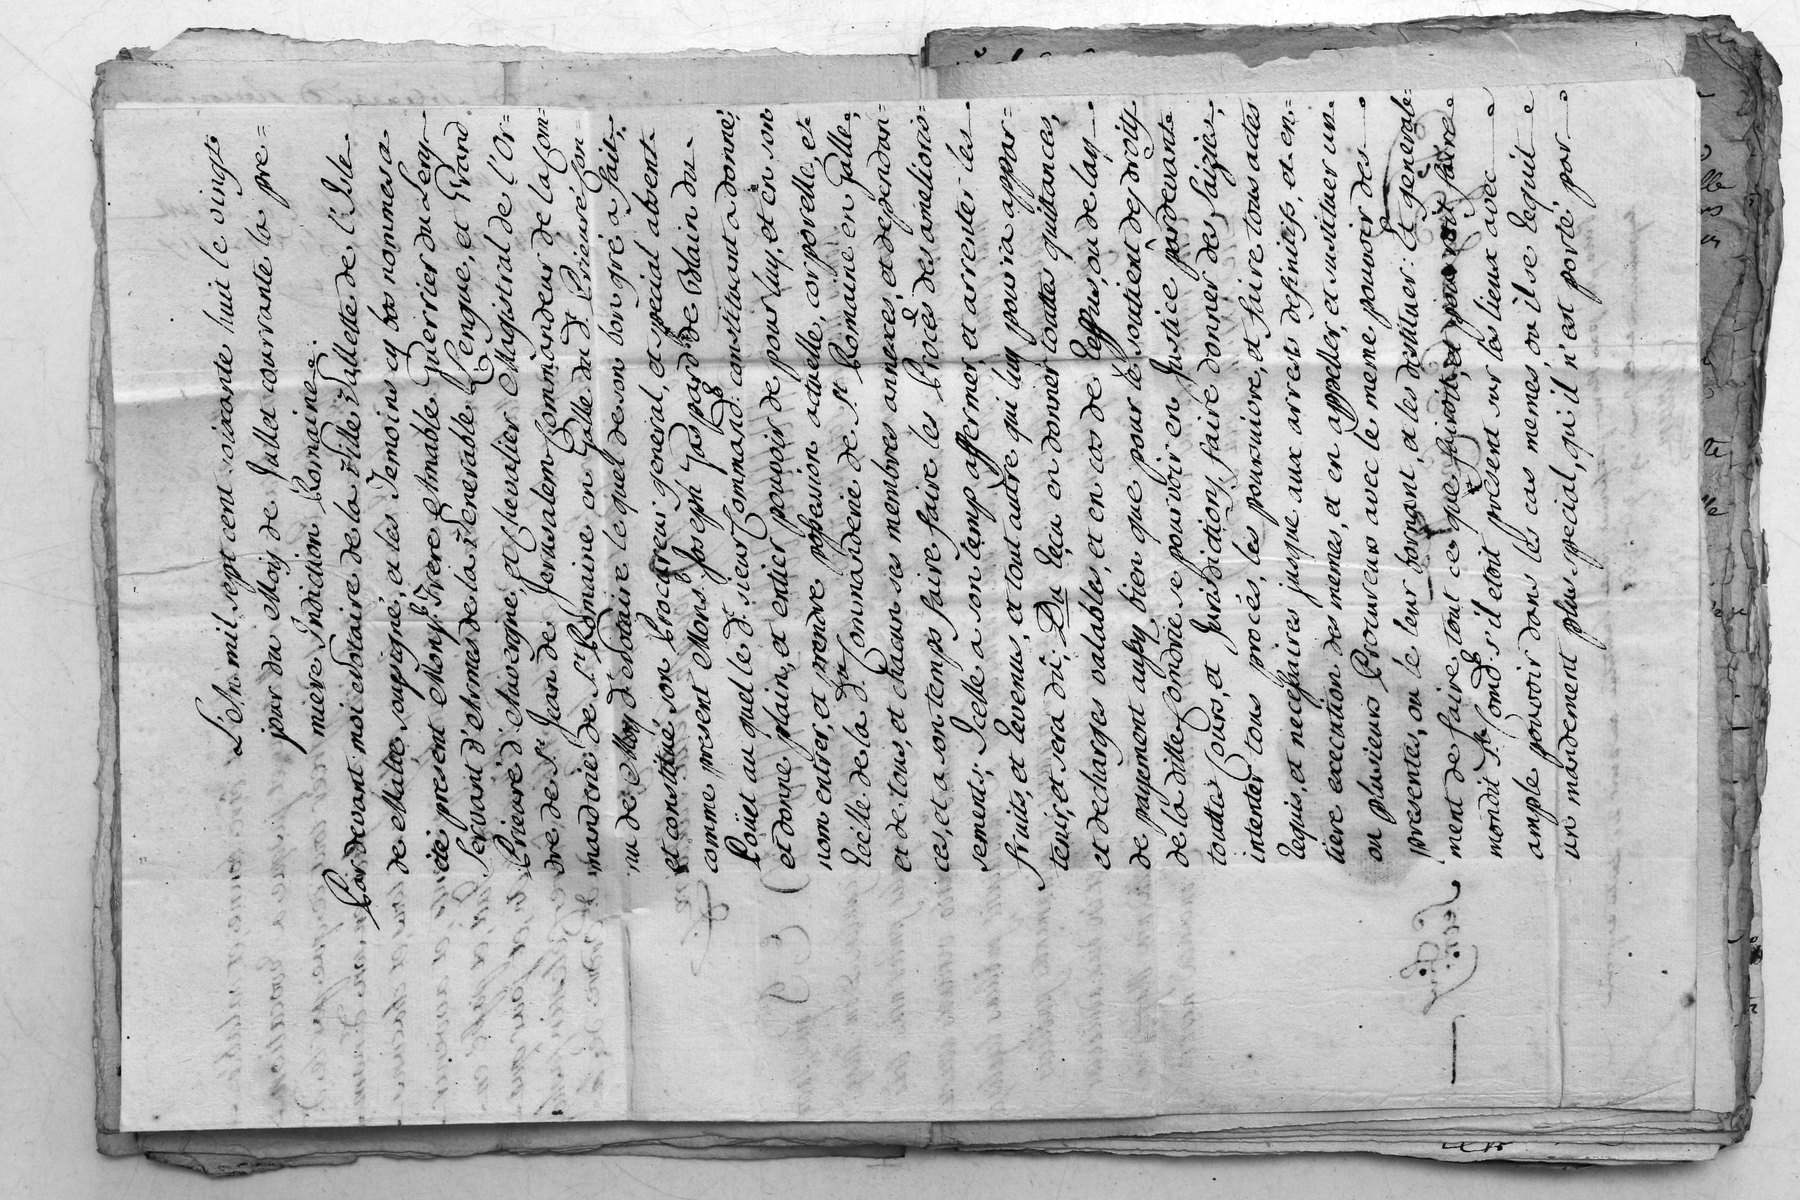 L'An mil sept cent soixante huit le vingt
jour du Mois de Juillet courrante la pre=
miere Indiction Romaine.
Par devant moi Notaire de la Ville Vallette de l'Isle
de Malte, soussigné, et les Temoins cy bas nommes a
été present Monsr. Frere Amable Guerrier du Lery
Servant d'Armes de la Venerable Lengue, et Grand
Prieuré d'Auvergne, et Chevalier Magistral de l'Or=
dre de St. Jean de Jerusalem Commandeur de la Com=
manderie de Ste. Romaine en Galle du dt. Prieuré Con=
nu de Moy d. Notaire le quel de son bon gré a fait,
et constitué son Procureur general, et special absent
comme present Monsr. Joseph Gaspard de Blain du
Poüet au quel le d. sieur Command. constituant a donné,
et donne plain, et entier pouvoir de pour luy, et en son
nom entrer, et prendre possession actuelle, corporelle, et
reélle de la dte. Commanderie de Ste. Romaine en Galle,
et de tous, et chacun ses membres annexes, et dependan=
ces, et a son temps faire faire les Procés des ameliouris=
sements, Icelle a son temps affermer et arrenter les
fruits, et Revenus, et tout autre qui luy pourra appar=
tenir, et sera dû; Du Reçu en donner touttes quittances,
et decharges valables, et en cas de Reffus, ou delay
de payement aussy bien que pour le soutient des droits
de la ditte Comdrie se pourvoir en Justice pardevant
touttes Cours, et Jurisdictions, faire donner des saizies,
intenter tous procés, les poursuivre, et faire tous actes
requis, et necessaires jusque aux arrets definitifs, et en=
tiere execution des memes, et en appeller, et sustituer un
ou plusieurs Procureurs avec le meme pouvoir des
presentes, ou le leur bornant, et les destituer: Et generale=
ment de faire tout ce que feroit, et pouroit faire
mondit Sr. Comdr. s'il etoit présent sur les lieux avec
ample pouvoir dans les cas memes ou il se requit
un mandement plus special, qu'il n'est porté par